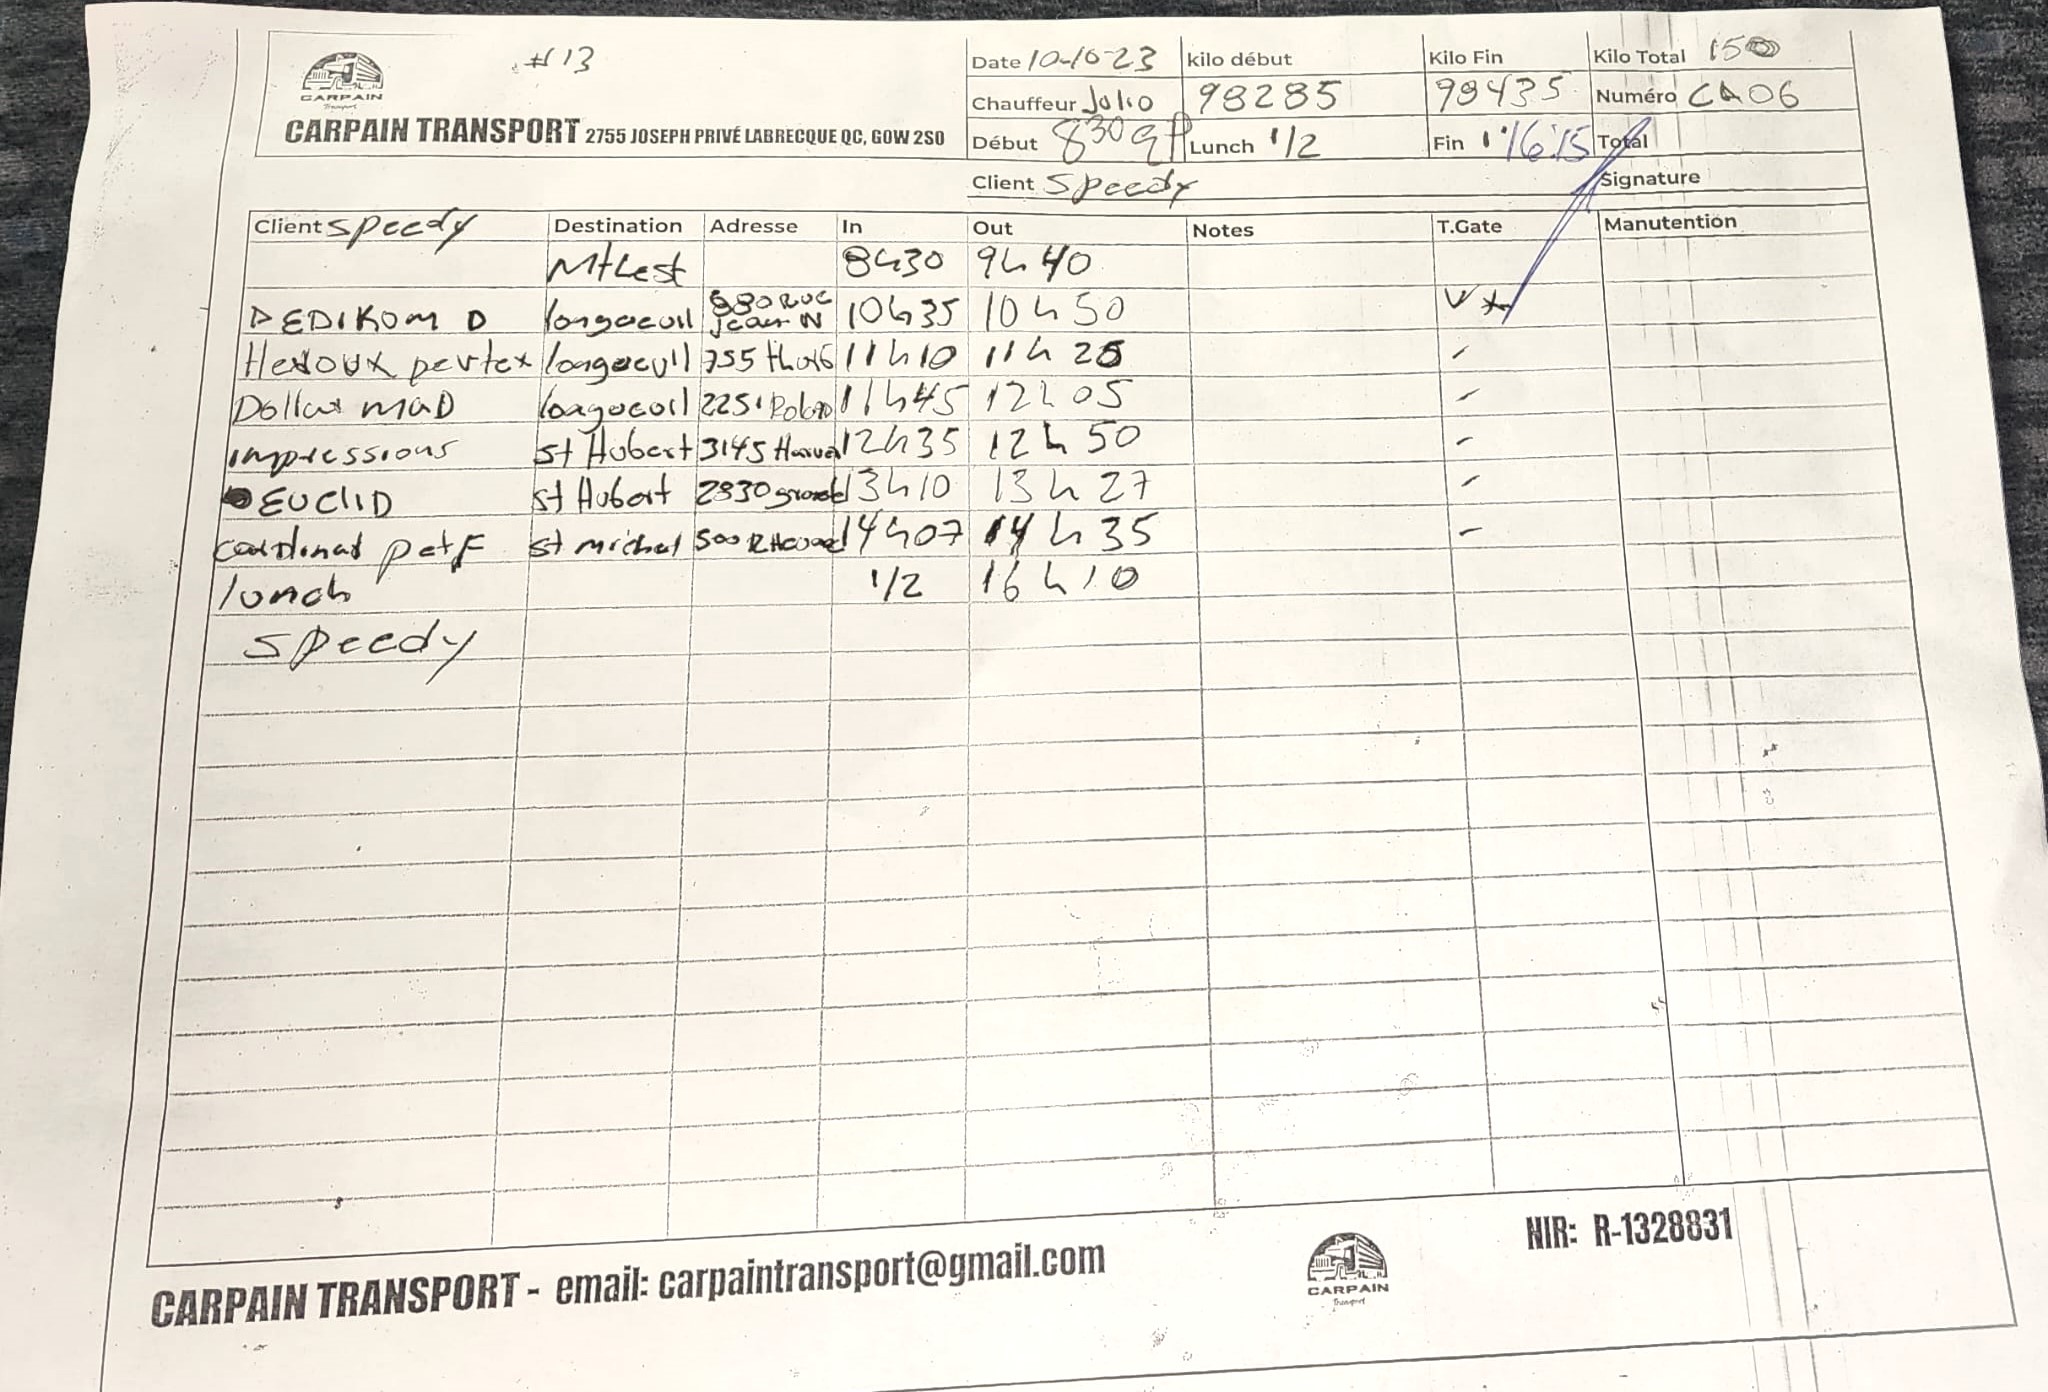 # 13
CARPAIN
Transport
CARPAIN TRANSPORT 2755 JOSEPH PRIVÉ LABRECQUE QC, G0W 2S0
Date 10-10-23 kilo début Kilo Fin Kilo Total 150
Chauffeur Julio 98285 98435 Numéro CA06
Début 8 30 Lunch 1/2 Fin 16:15 Total
Client Speedy Signature
Client Speedy Destination Adresse In Out Notes T.Gate Manutention
Mtl est 8h30 9h40
DEDIKOM D longueuil Jean N 10h35 10h50
longueuil 755 11h10 11h25
Dollar maD longueuil 2251 11h45 12h05
impressions st Hubert 3145 12h35 12h50
EUCLID st Hubert 2830 13h10 13h27
st michel 500 14h07 14h35
lunch 1/2 16h10
Speedy
CARPAIN TRANSPORT - email: carpaintransport@gmail.com
CARPAIN
Transport
NIR: R-1328831